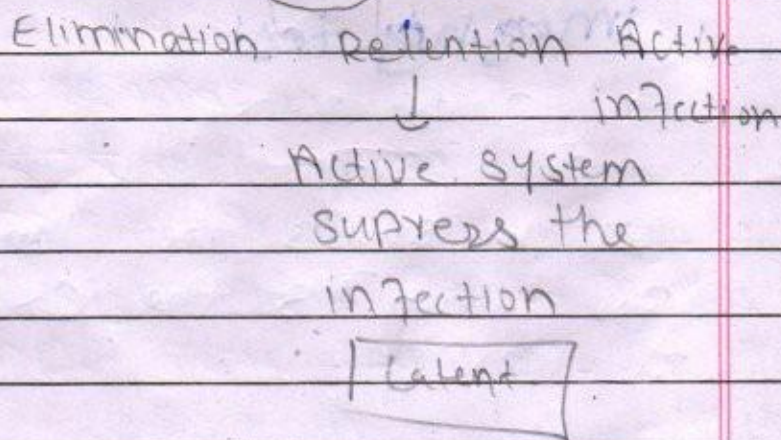 Elimination. Retention Active
infection
Active system
supress the
infection
Latent